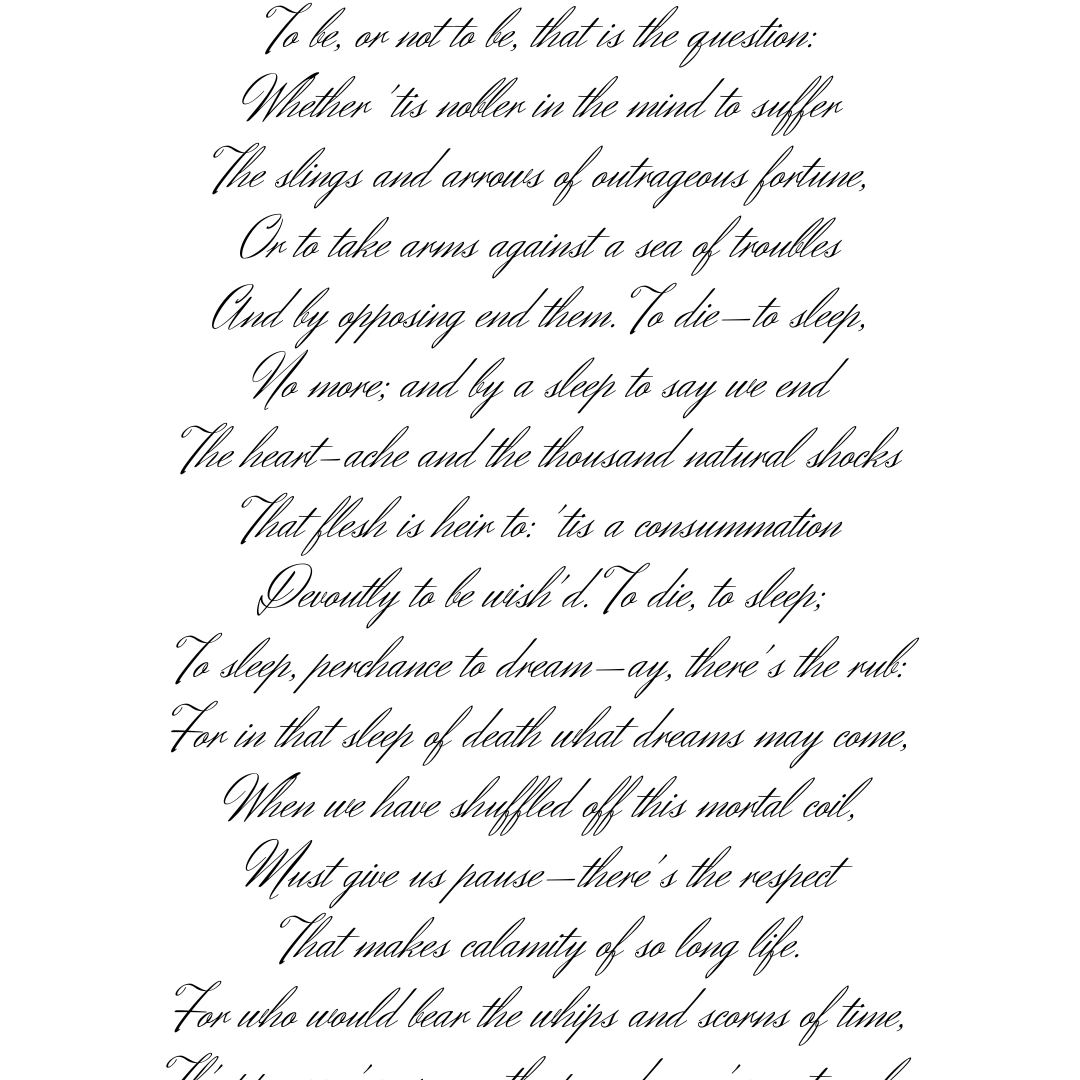 To be, or not to be, that is the question:
Whether 'tis nobler in the mind to suffer
The slings and arrows of outrageous fortune,
Or to take arms against a sea of troubles
And by opposing end them. To die—to sleep,
No more; and by a sleep to say we end
The heart-ache and the thousand natural shocks
That flesh is heir to: 'tis a consummation
Devoutly to be wish'd. To die, to sleep;
To sleep, perchance to dream—ay, there's the rub:
For in that sleep of death what dreams may come,
When we have shuffled off this mortal coil,
Must give us pause—there's the respect
That makes calamity of so long life.
For who would bear the whips and scorns of time,